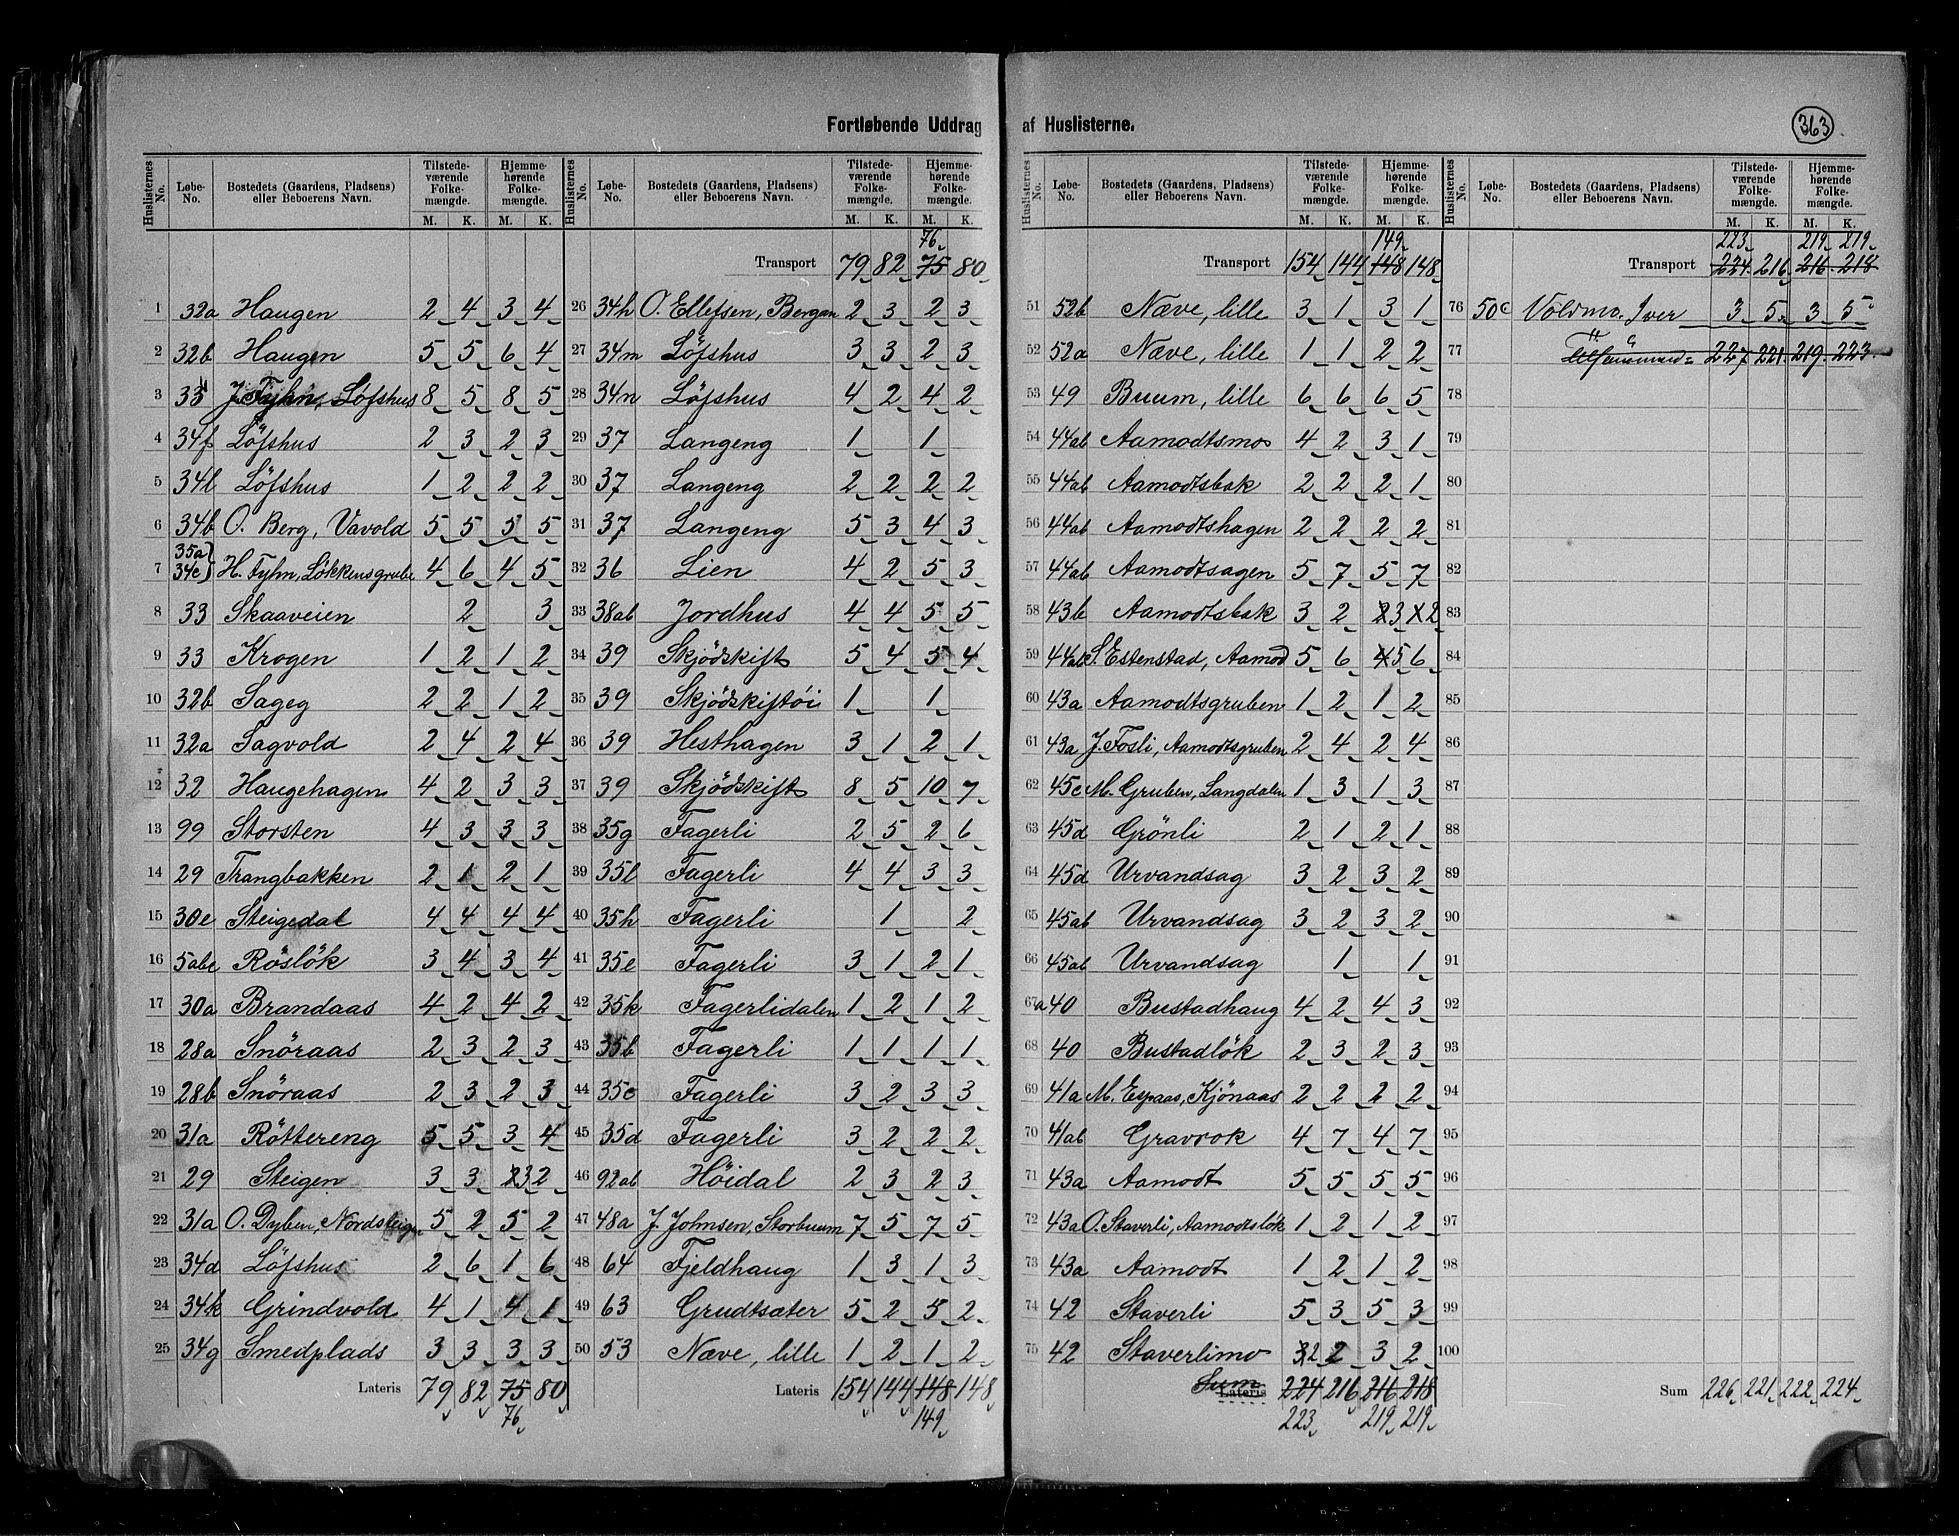 Fortløbende Uddrag af Huslisterne. 363
Huslisternes No. Løbe-No. Bostedets (Gaardens, Pladsens) eller Beboerens Navn. Tilstedeværende Folkemængde. M. K. Hjemmehørende Folkemængde. M. K.
1 32a Haugen 2 4 3 4
2 32b Haugen 5 5 6 4
3 35 J. Fyhn, Löfshus 8 5 8 5
4 34f Löfshus 2 3 2 3
5 34l Löfshus 1 2 2 2
6 34b O. Berg, Vavold 5 5 5 5
7 35a 34c H. Fyhn, Lökkensgrube 4 6 4 5
8 33 Skaaveien 2 3
9 33 Krogen 1 2 1 2
10 32b Sageg 2 2 1 2
11 32a Sagvold 2 4 2 4
12 32 Haugehagen 4 2 3 3
13 99 Storsten 4 3 3 3
14 29 Trangbakken 2 1 2 1
15 30e Steigedal 4 4 4 4
16 5abc Röslök 3 4 3 4
17 30a Brandaas 4 2 4 2
18 28a Snöraas 2 3 2 3
19 28b Snöraas 2 3 2 3
20 31a Röttereng 5 5 3 4
21 29 Steigen 3 3 2 3 2
22 31a O. Dyben, Nordsteigen 5 2 5 2
23 34d Löfshus 2 6 1 6
24 34k Grindvold 4 1 4 1
25 34g Smedplads 3 3 3 3
Lateris 79 82 75 80
76
Huslisternes No. Løbe-No. Bostedets (Gaardens, Pladsens) eller Beboerens Navn. Tilstedeværende Folkemængde. M. K. Hjemmehørende Folkemængde. M. K.
76
Transport 79 82 75 80
26 34h O. Ellefsen, Bergan 2 3 2 3
27 34m Löfshus 3 3 2 3
28 34n Löfshus 4 2 4 2
29 37 Langeng 1 1
30 37 Langeng 2 2 2 2
31 37 Langeng 5 3 4 3
32 36 Lien 4 2 5 3
33 38ab Jordhus 4 4 5 5
34 39 Skjödskift 5 4 5 4
35 39 Skjödskiftöi 1 1
36 39 Hesthagen 3 1 2 1
37 39 Skjödskift 8 5 10 7
38 35g Fagerli 2 5 2 6
39 35l Fagerli 4 4 3 3
40 35h Fagerli 1 2
41 35e Fagerli 3 1 2 1
42 35k Fagerlidalen 1 2 1 2
43 35b Fagerli 1 1 1 1
44 35c Fagerli 3 2 3 3
45 35d Fagerli 3 2 2 2
46 92ab Höidal 2 3 2 3
47 48a J. Johnsen, Storbuum 7 5 7 5
48 64 Fjeldhaug 1 3 1 3
49 63 Grudtsæter 5 2 5 2
50 53 Næve, lille 1 2 1 2
Lateris 154 144 148 148
149
Huslisternes No. Løbe-No. Bostedets (Gaardens, Pladsens) eller Beboerens Navn. Tilstedeværende Folkemængde. M. K. Hjemmehørende Folkemængde. M. K.
149
Transport 154 144 148 148
51 52b Næve, lille 3 1 3 1
52 52a Næve, lille 1 1 2 2
53 49 Buum, lille 6 6 6 5
54 44ab Aamodtsmo 4 2 3 1
55 44ab Aamodtsbak 2 2 2 1
56 44ab Aamodtshagen 2 2 2 2
57 44ab Aamodtsagen 5 7 5 7
58 43b Aamodtsbak 3 2 2 3 1 2
59 44ab S. Estenstad, Aamod 5 6 4 5 6
60 43a Aamodtsgruben 1 2 1 2
61 43a J. Fosli, Aamodtsgruben 2 4 2 4
62 45c M. Gruben, Langdalen 1 3 1 3
63 45d Grönli 2 1 2 1
64 45d Urvandsag 3 2 3 2
65 45ab Urvandsag 3 2 3 2
66 45ab Urvandsag 1 1
67a 40 Bustadhaug 4 2 4 3
68 40 Bustadlök 2 3 2 3
69 41a M. Espaas, Kjönaas 2 2 2 2
70 41ab Gravrok 4 7 4 7
71 43a Aamodt 5 5 5 5
72 43a O. Staverli, Aamodtslök 1 2 1 2
73 43a Aamodt 1 2 1 2
74 42 Staverli 5 3 5 3
75 42 Staverlimo 3 2 2 3 2
Sum Lateris 224 216 216 218
223 219 219
Huslisternes No. Løbe-No. Bostedets (Gaardens, Pladsens) eller Beboerens Navn. Tilstedeværende Folkemængde. M. K. Hjemmehørende Folkemængde. M. K.
223 219 219
Transport 224 216 216 218
76 50c Voldmo, Iver 3 5 3 5
77 227 221 219 223
78
79
80
81
82
83
84
85
86
87
88
89
90
91
92
93
94
95
96
97
98
99
100
Sum 226 221 222 224